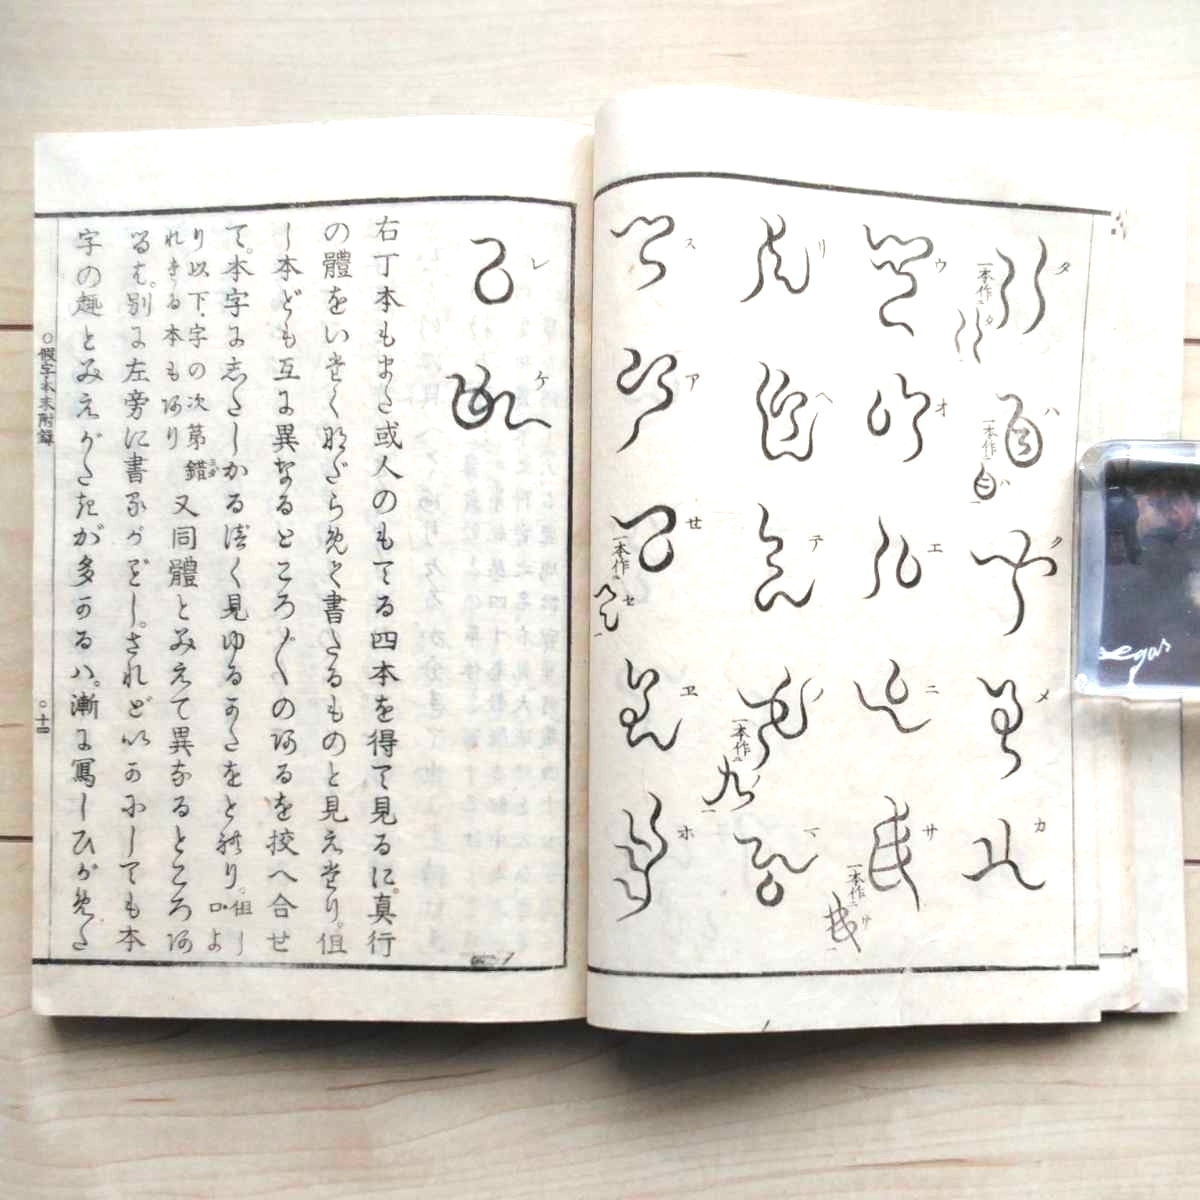 タ 一本作 タ
ハ 一本作 ハ
ク
メ
カ
ウ
オ
エ
ニ
サ 一本作 サ
リ
ヘ
テ
ノ 一本作
マ
ス
ア
セ 一本作 セ
ヱ
ホ
レ
ケ
右丁本もまた或人のもてる四本を得て見るに。真行
の體をいたく書たるものと見えたり。但
し本ども互に異なるところ〴〵のあるを挍へ合せ
て。本字に志たしかるべく見ゆるかたをとれり。但しロよ
り以下、字の次第錯れたる本もあり 又同體とみえて異なるところあ
るは。別に左旁に書るがごとし。されどいかにしても本
字の趣とみえがたきが多かるハ。漸に冩しひがめた
○假字本末附録
○十四